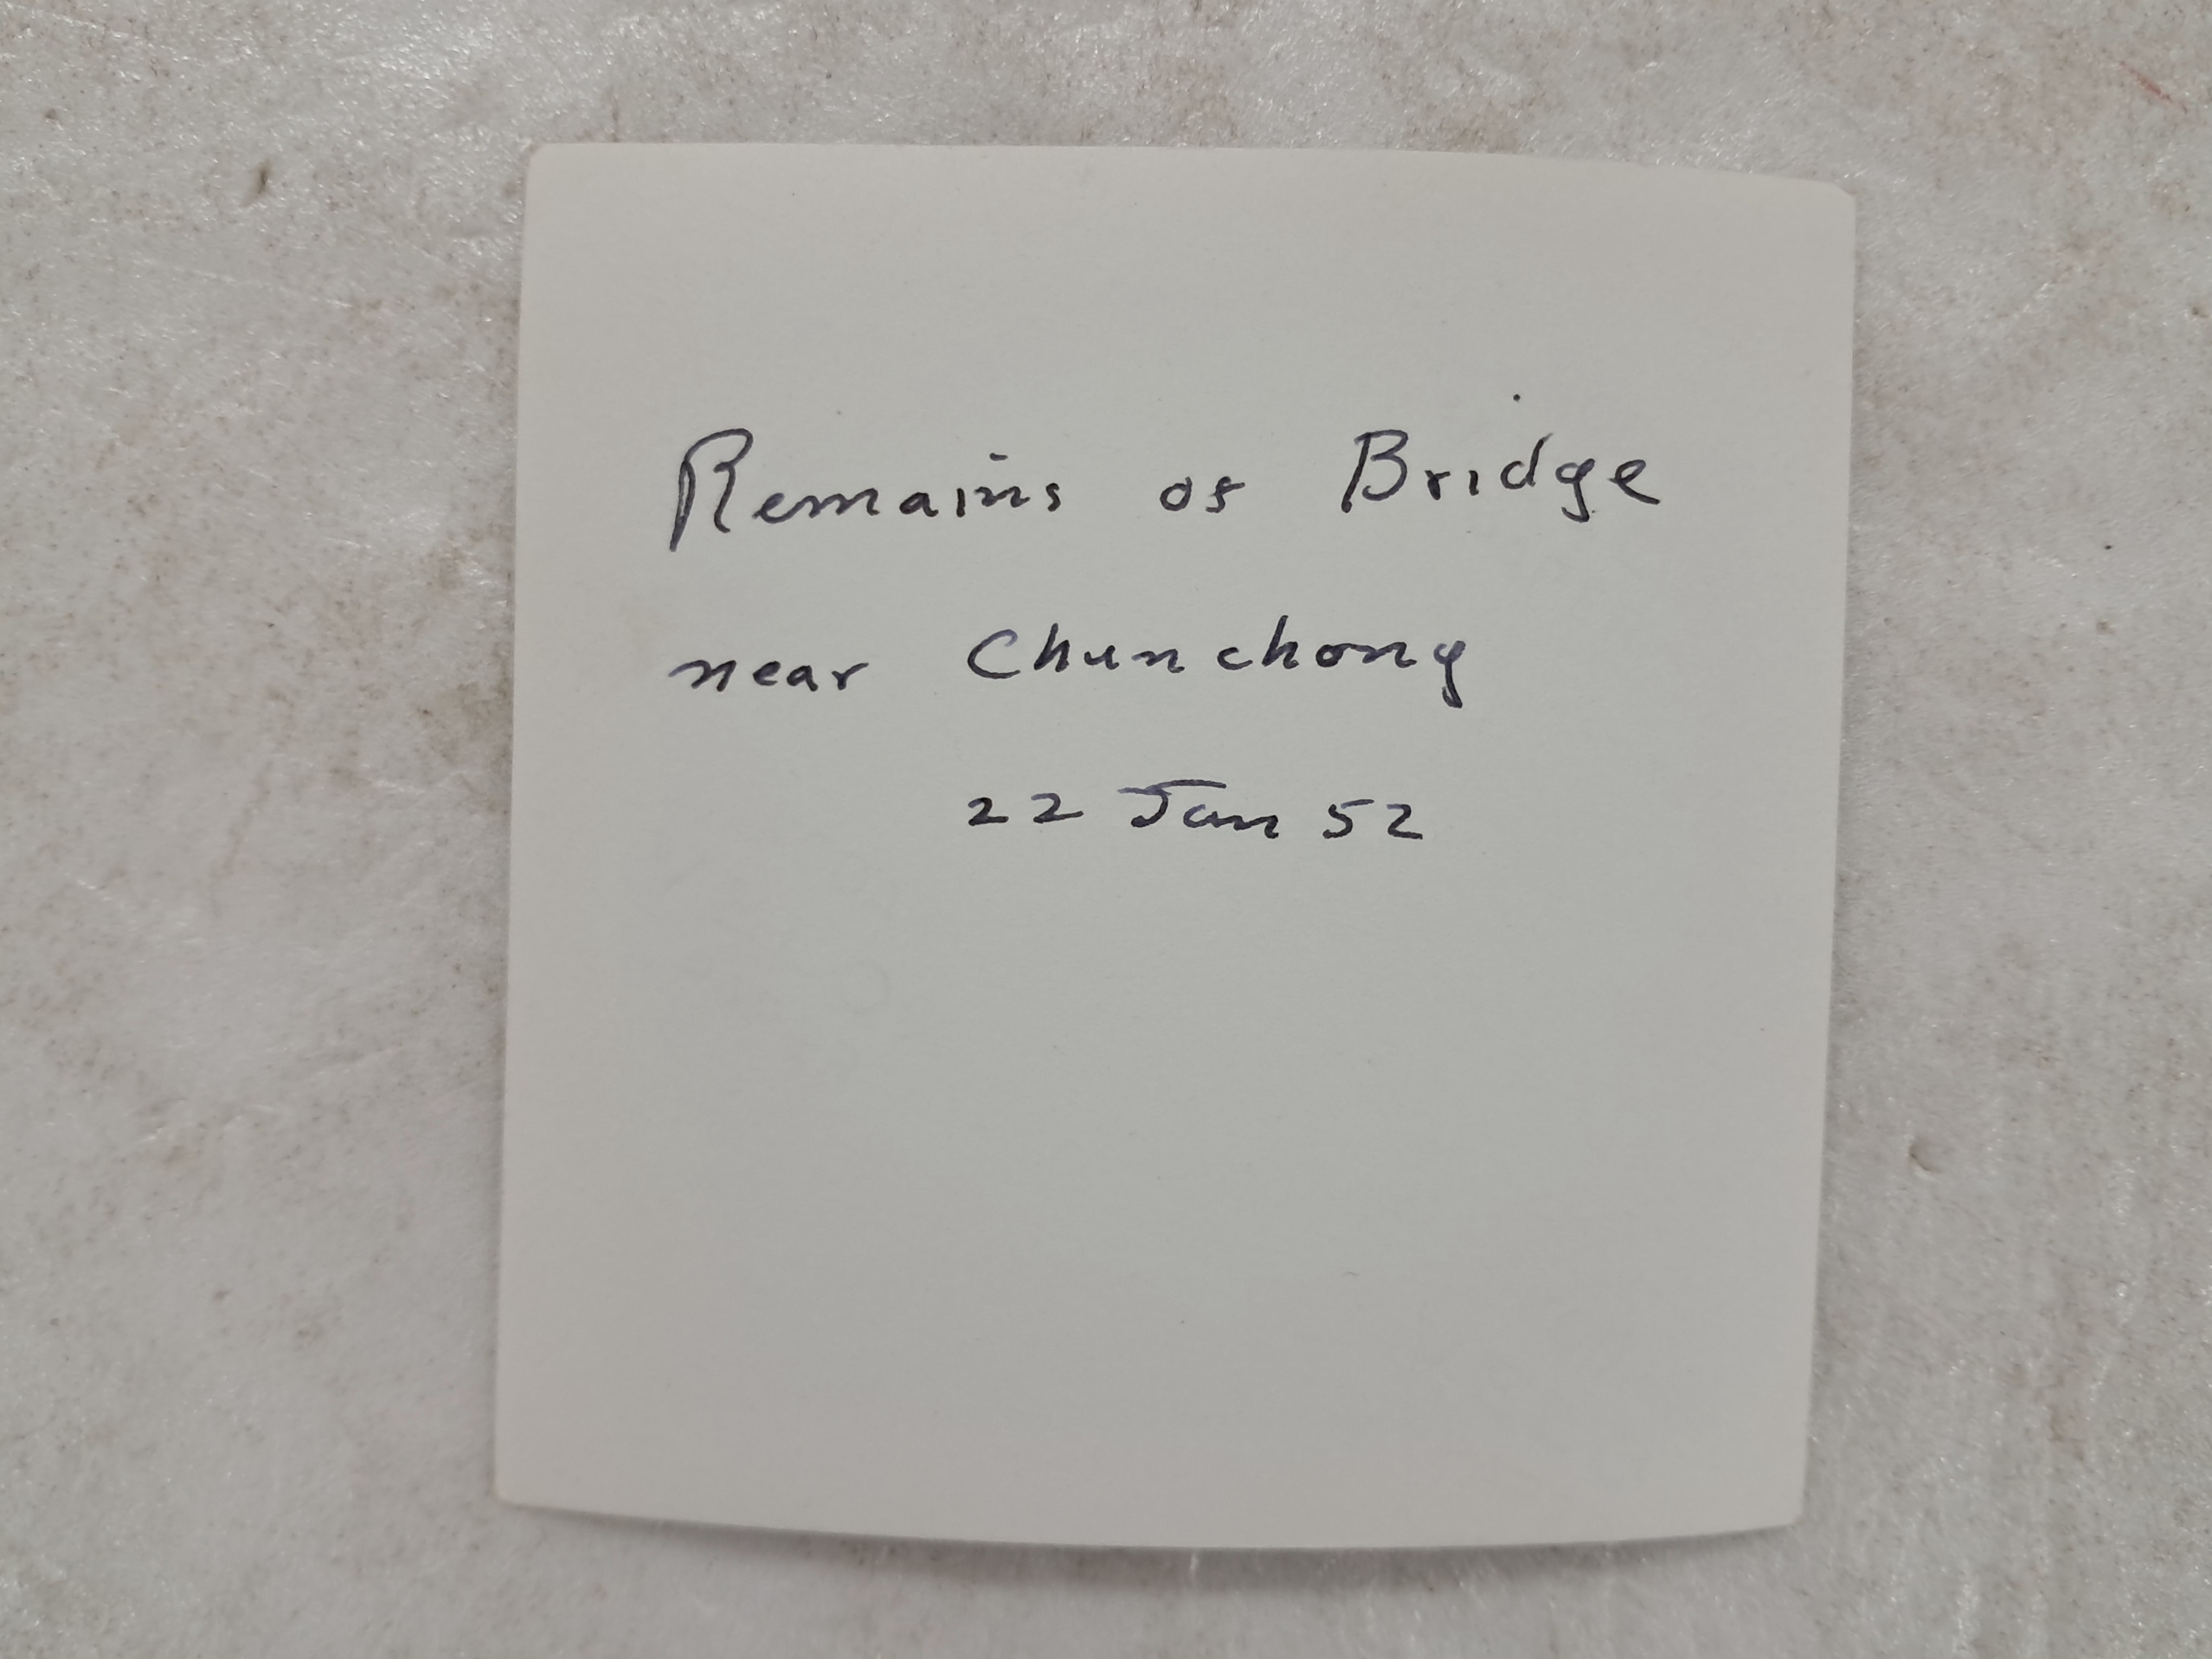 Remains of Bridge
near Chunchong
22 Jan 52